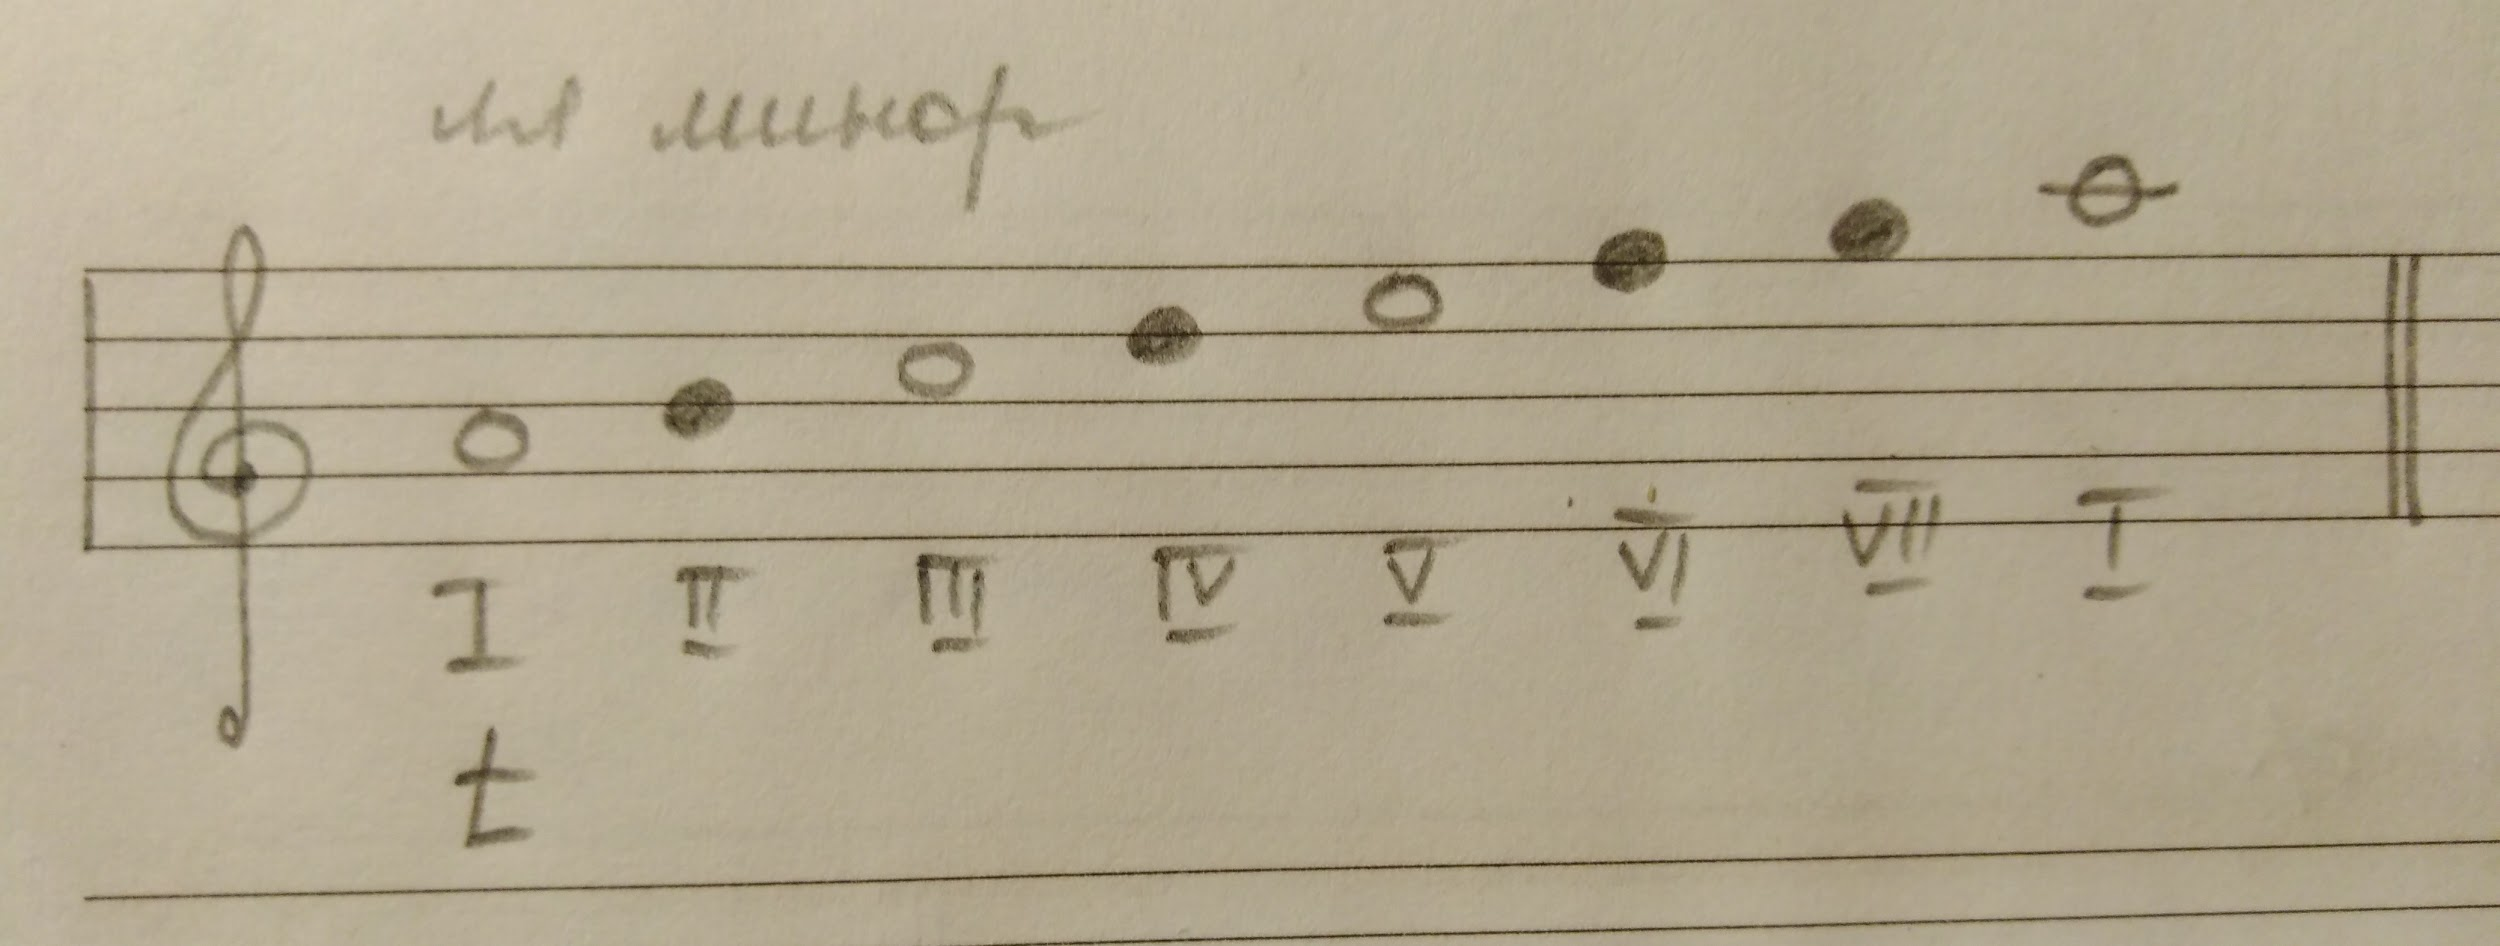 ля минор
I II III IV V VI VII I
t